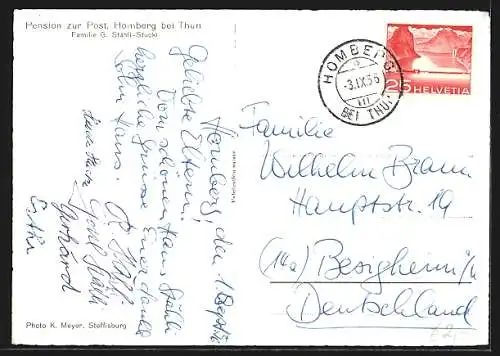 Pension zur Post, Homberg bei Thun
Familie G. Stähli-Stucki
Homberg, den 1. Sept.
Geliebte Eltern!
Vom schönen Haus Stähli
herzliche Grüsse Euer dankb.
Sohn Hans.
Gerhard
Esther
Photo K. Meyer, Steffisburg
HOMBERG
-3.IX.56
VII
BEI THUN
25 HELVETIA
Familie
Wilhelm Braun
Hauptstr. 19
(14a) Besigheim/N
Deutschland